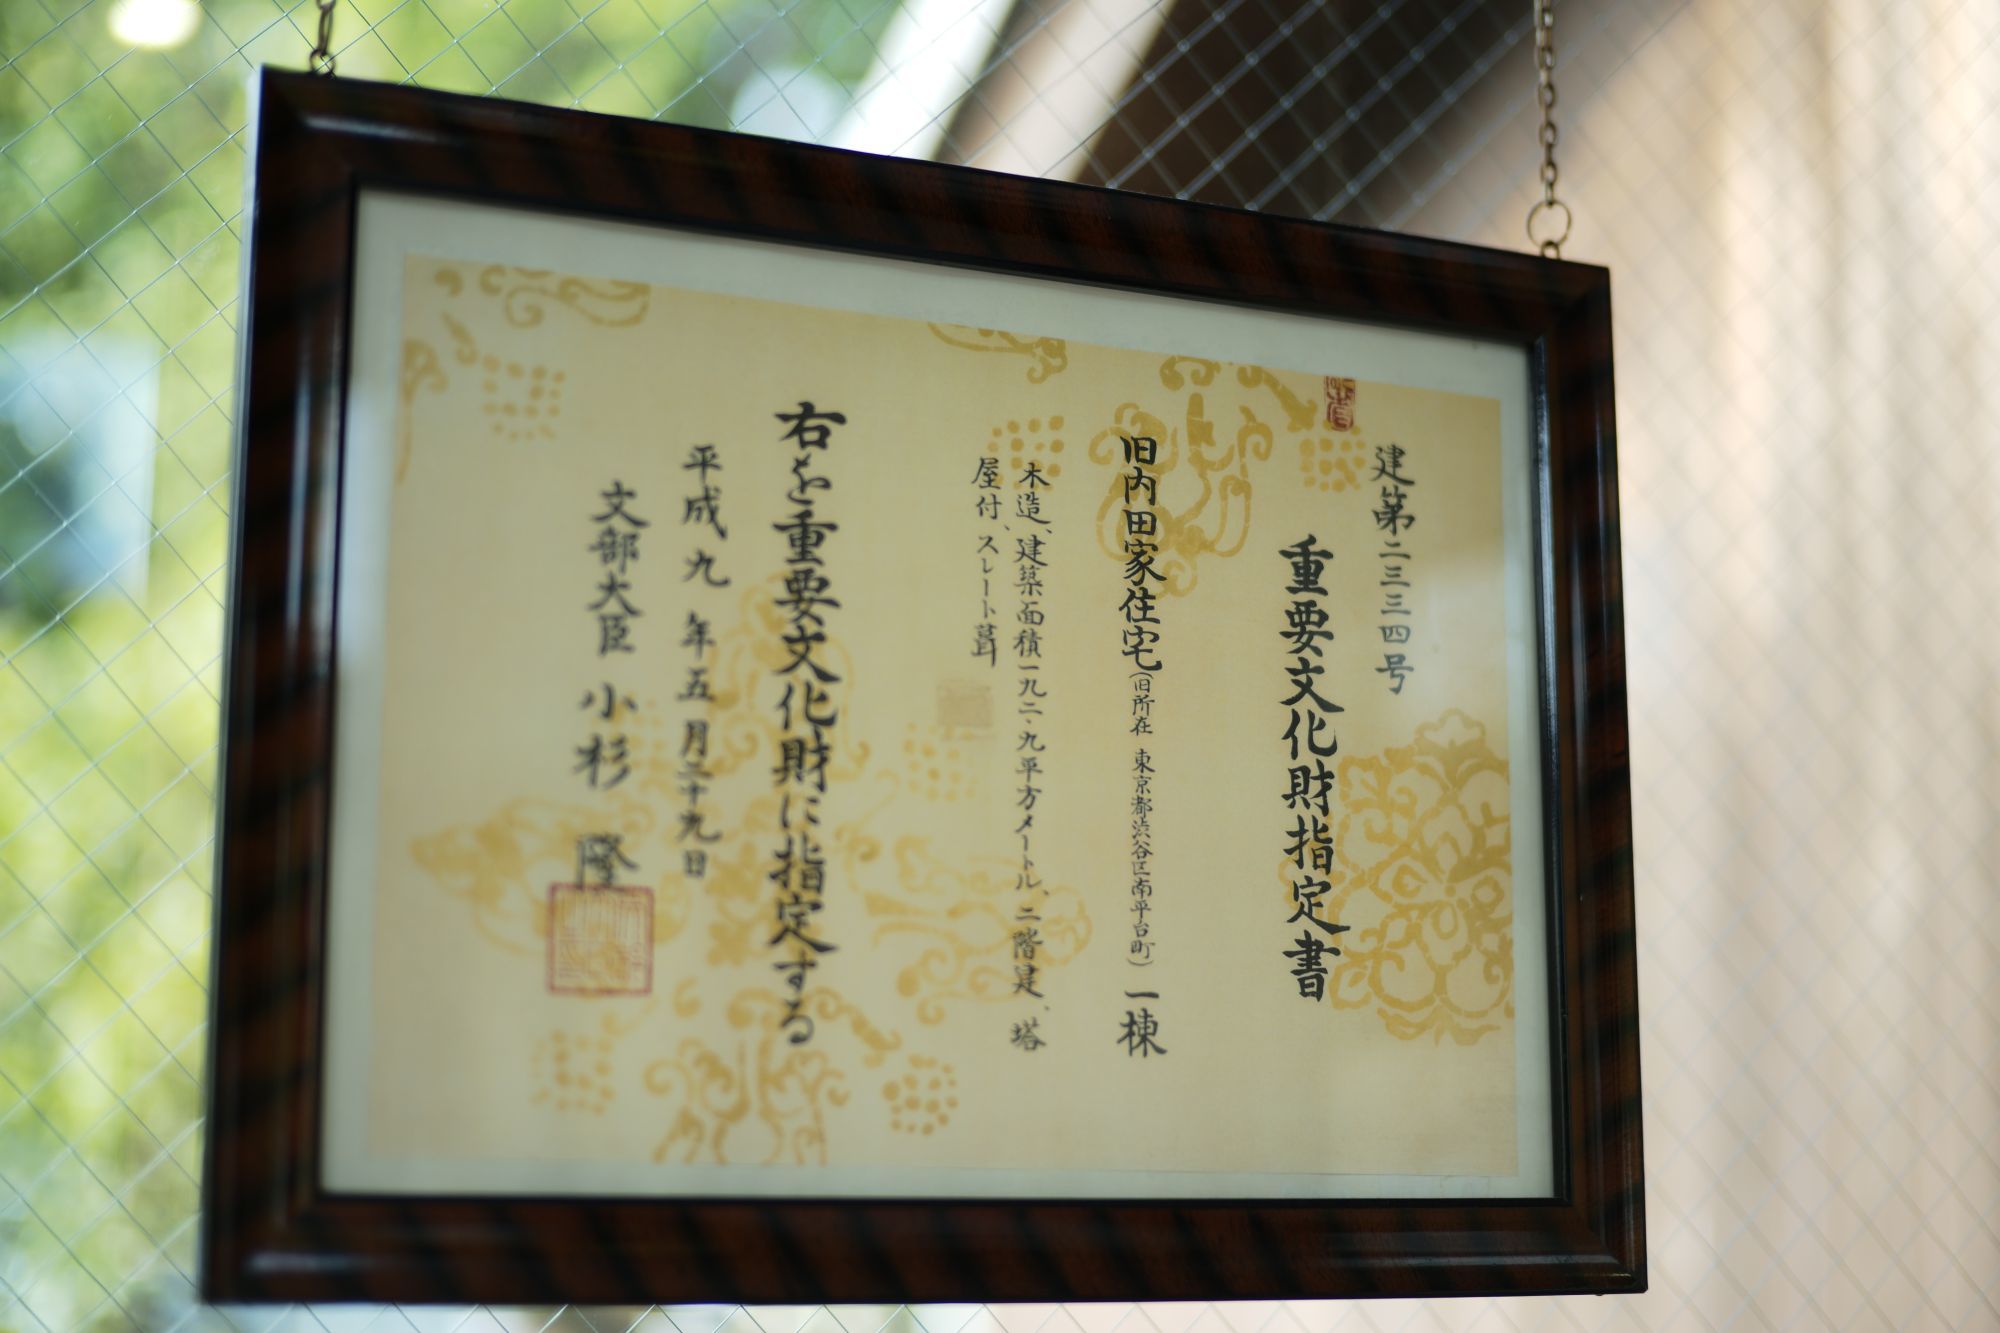 建第二三三四号
重要文化財指定書
旧内田家住宅(旧所在 東京都渋谷区南平台町) 一棟
木造、建築面積一九二・九平方メートル、二階建、塔
屋付、スレート葺
右を重要文化財に指定する
平成九年五月二十九日
文部大臣 小杉 隆